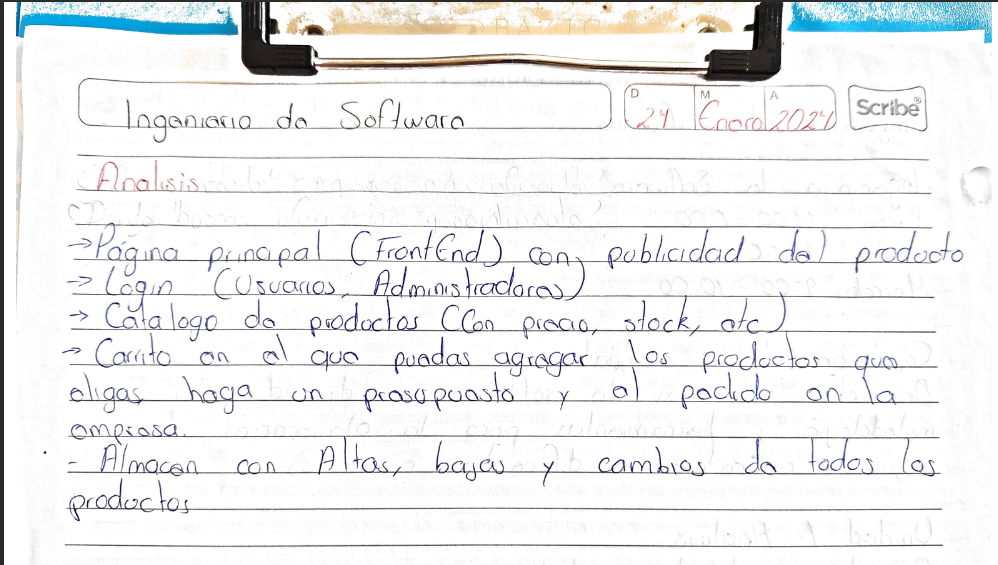 Ingenieria de Software
D M A
24 Enero 2024
Scribe®
Analisis
→Página principal (FrontEnd) con publicidad del producto
→ Login (Usuarios, Administradores)
→ Cátalogo de productos (Con precio, stock, etc)
→ Carrito en el que puedas agregar los productos que
eligas haga un presupuesto y el pedido en la
empresa.
- Almacen con Altas, bajas y cambios de todos los
productos